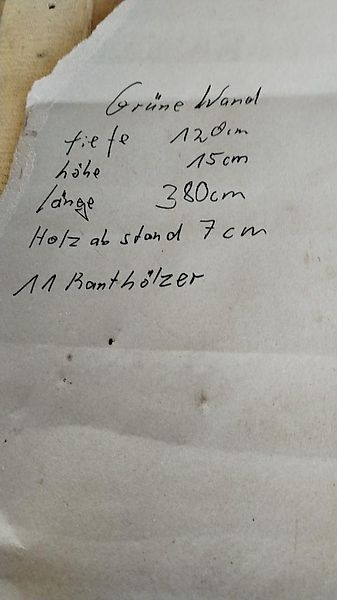 Grüne Wand
tiefe 120cm
höhe 15cm
länge 380cm
Holz ab stand 7cm
11 Kanthölzer